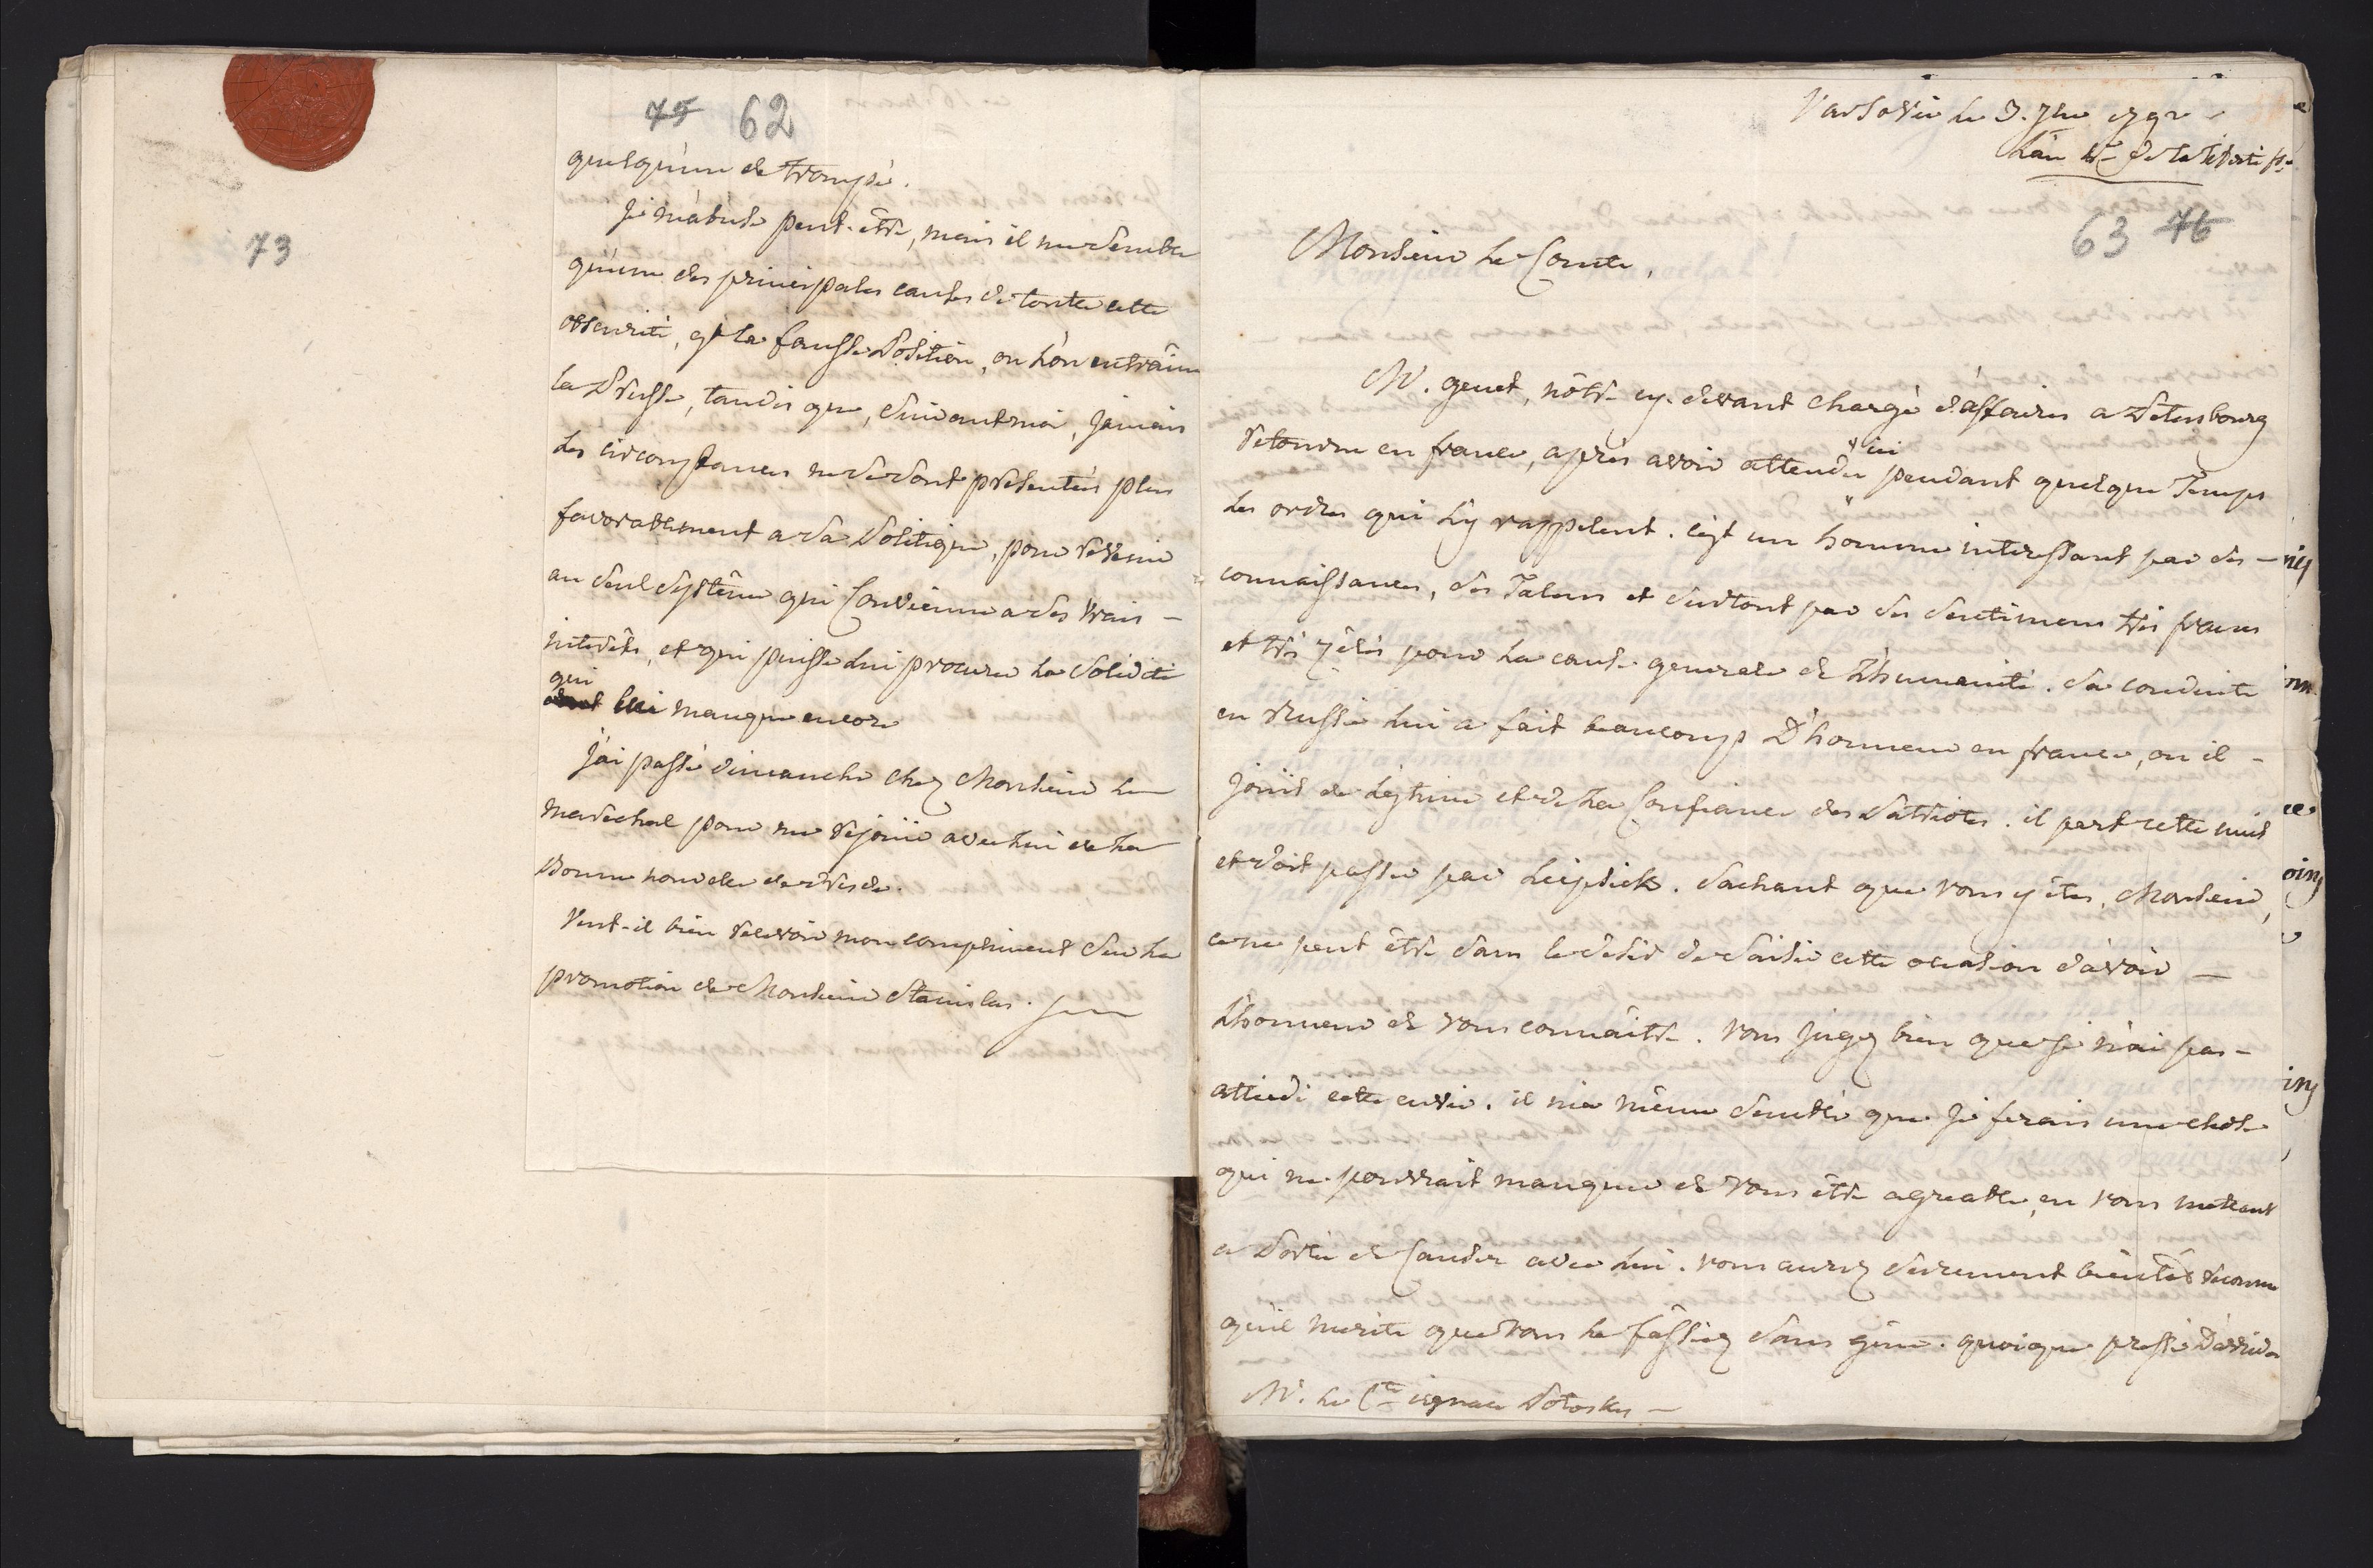 73
75 62
quelqu'un de trompé.
Je m'abuse peut-être, mais il me semble
qu'une des principales causes de toute cette
obscurité, est la fausse Position, ou l'on entraine
la Prusse, tandis que, suivant moi, jamais
les circonstances ne se sont presentées plus
favorablement a sa Politique, pour revenir
au seul système qui Convienne a ses vrais -
interêts, et qui puisse lui procurer la solidité
qui
lui manque encore
J'ai passé dimanche chez Monsieur le
Marechal pour me rejouir avec lui de la
Bonne nouvelle de Dresde.
Veut-il bien recevoir mon compliment sur la
promotion de Monsieur Stanislas.
Varsovie le 3. 7bre 1792
L'an 4e de la Liberté fse
63 76
Monsieur le Comte,
M. genet, nôtre cy-devant chargé d'affaires a Petersbourg
ici
retourne en france, après avoir attendu pendant quelque Temps
les ordres qui l'y rappelent. c'est un homme interessant par ses -
connaissances, ses Talens et surtout par ses sentimens très francs
et très zêlés pour la cause generale de l'humanité. sa conduite
en Russie lui a fait beaucoup d'honneur en france, ou il -
jouit de l'estime et de la Confiance des Patriotes. il part cette nuit
et doit passer par Leipsick. sachant que vous y êtes, Monsieur,
ce ne peut être sans le désir de saisir cette ocasion d'avoir -
l'honneur de vous connaître. vous jugez bien que je n'ai pas -
attiedi cette envie. il m'a même semblé que je ferais une chose
qui ne pourrait manquer de vous être agreable, en vous mettant
a Portée de Causer avec lui. vous aurez surement bientôt reconnu
qu'il merite que vous le fassiez sans gêne. quoique pressé d'arriver
M. le Cte ignace Potosky -